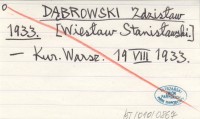 DĄBROWSKI Zdzisław
1933. [Wiesław Stanisławski]
— Kur. Warsz. 19 VIII 1933.
AT/010/0267